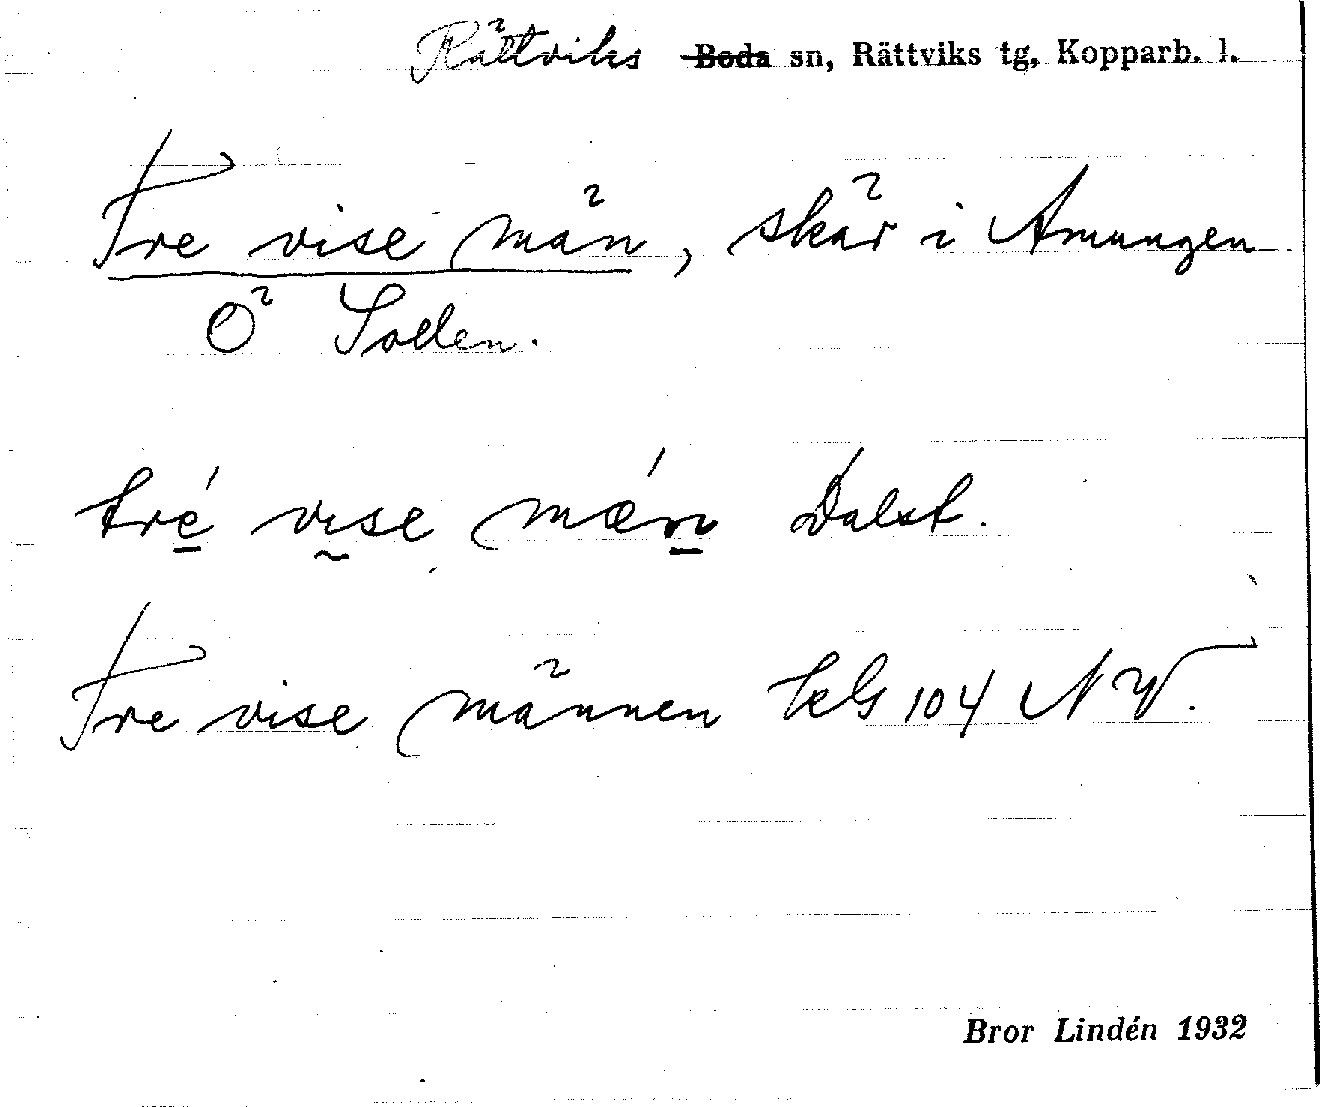 Rättviks ~~Boda~~ sn, Rättviks tg, Kopparb. l.
Tre vise män, skär i Amungen
Ö Sollen.
tré vise mæn Dalst.
Tre vise männen kbl 104 NV.
Bror Lindén 1932